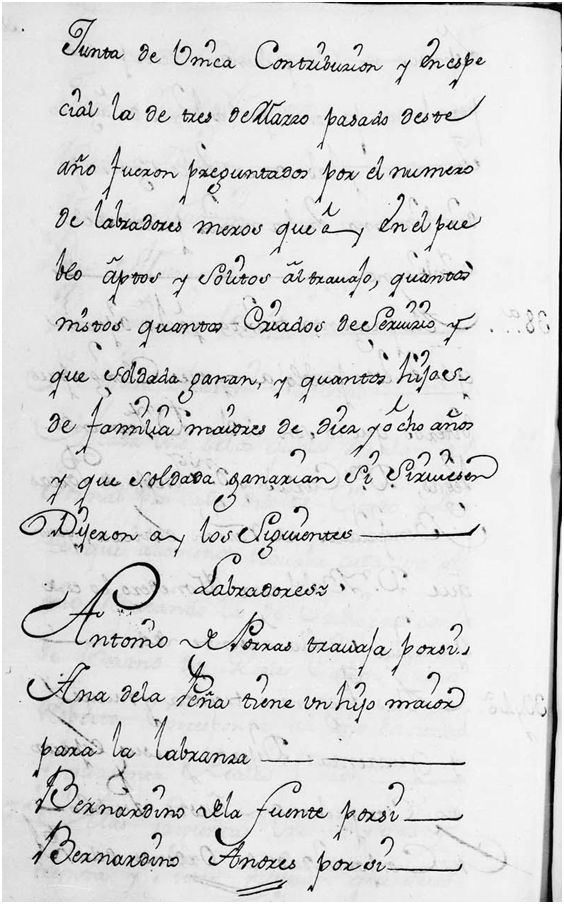 Junta de Unica Contribuzion y en espe
cial la de tres de Marzo pasado deste
año fueron preguntados por el numero
de labradores meros que ay en el pue
blo aptos y Solitos al travajo, quantos
mistos quantos Criados de Servizio y
que soldada ganan, y quantos hijos
de familia maiores de diez y ocho años
y que soldada ganarian Si Sirviesen
Dijeron ay los Siguientes
Labradores
Antonio de Porras travaja por si
Ana de la Peña tiene un hijo maior
para la labranza
Bernardino de la fuente por si
Bernardino Andres por si